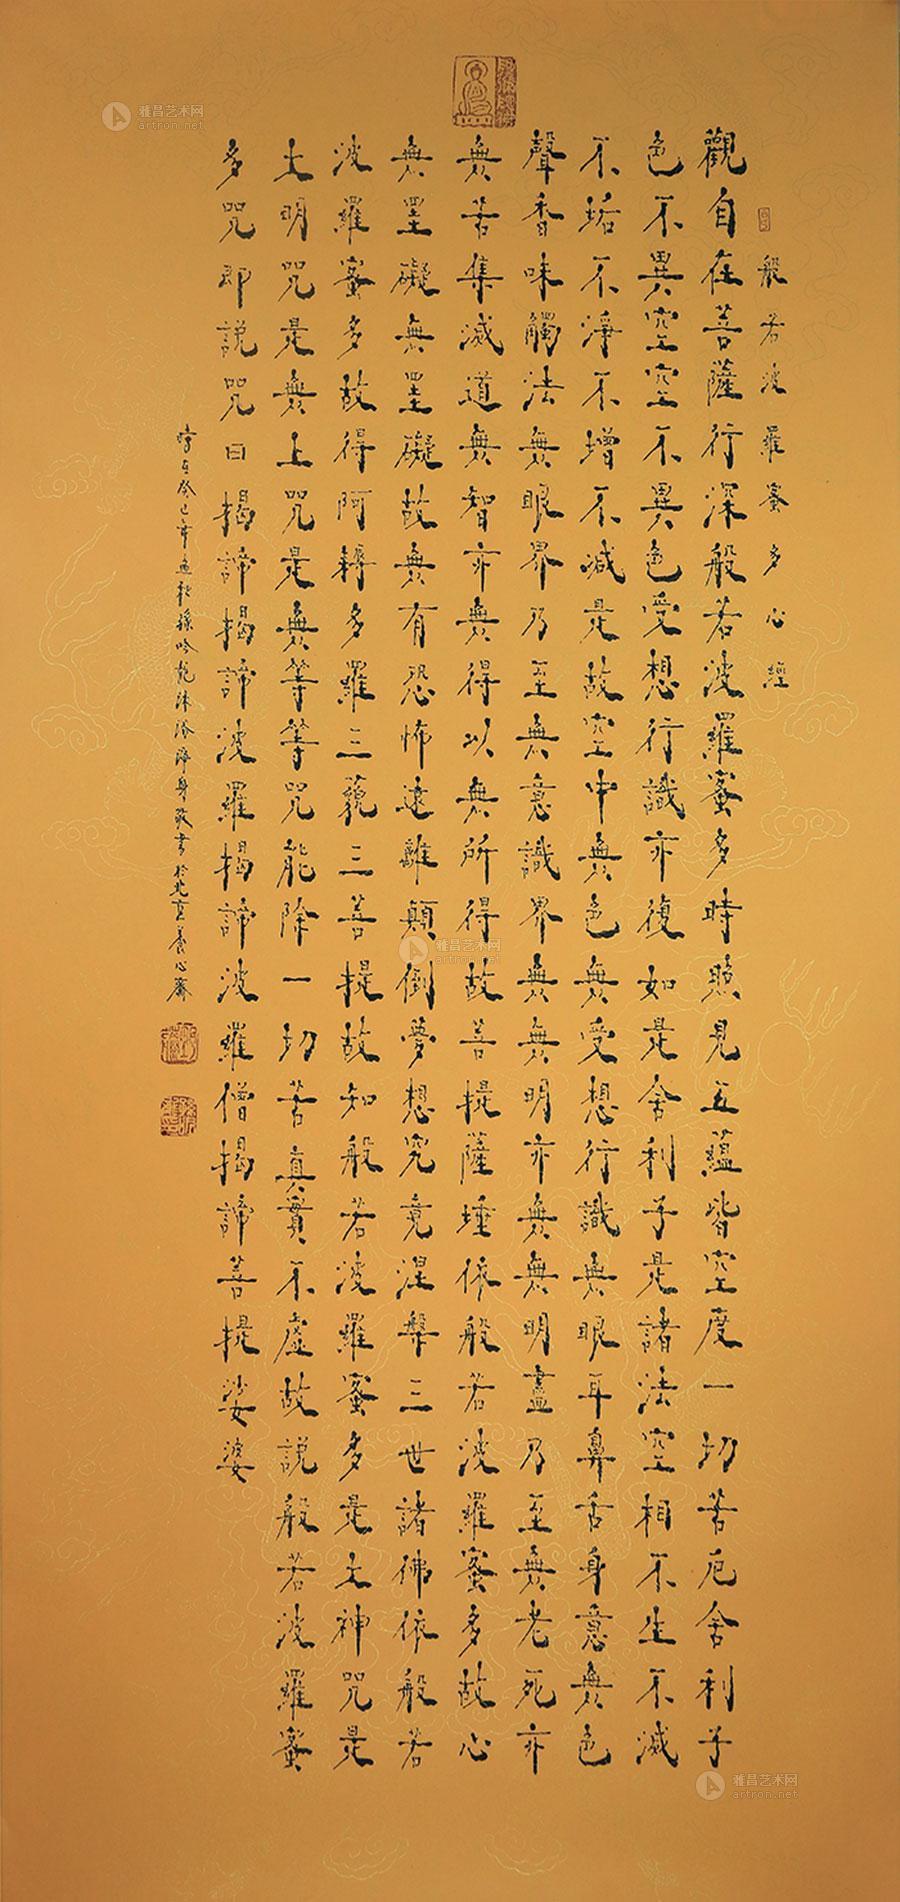 般若波羅蜜多心經
觀自在菩薩行深般若波羅蜜多時照見五蘊皆空度一切苦厄舍利子
色不異空空不異色受想行識亦復如是舍利子是諸法空相不生不滅
不垢不淨不增不減是故空中無色無受想行識無眼耳鼻舌身意無色
聲香味觸法無眼界乃至無意識界無無明亦無無明盡乃至無老死亦
無苦集滅道無智亦無得以無所得故菩提薩埵依般若波羅蜜多故心
無罣礙無罣礙故無有恐怖遠離顛倒夢想究竟涅槃三世諸佛依般若
波羅蜜多故得阿耨多羅三藐三菩提故知般若波羅蜜多是大神咒是
大明咒是無上咒是無等等咒能除一切苦真實不虛故說般若波羅蜜
多咒即說咒曰揭諦揭諦波羅揭諦波羅僧揭諦菩提娑婆
癸巳年孟秋孫吟龍沐浴淨身敬書於北京養心齋
雅昌艺术网
artron.net
雅昌艺术网
artron.net
雅昌艺术网
artron.net